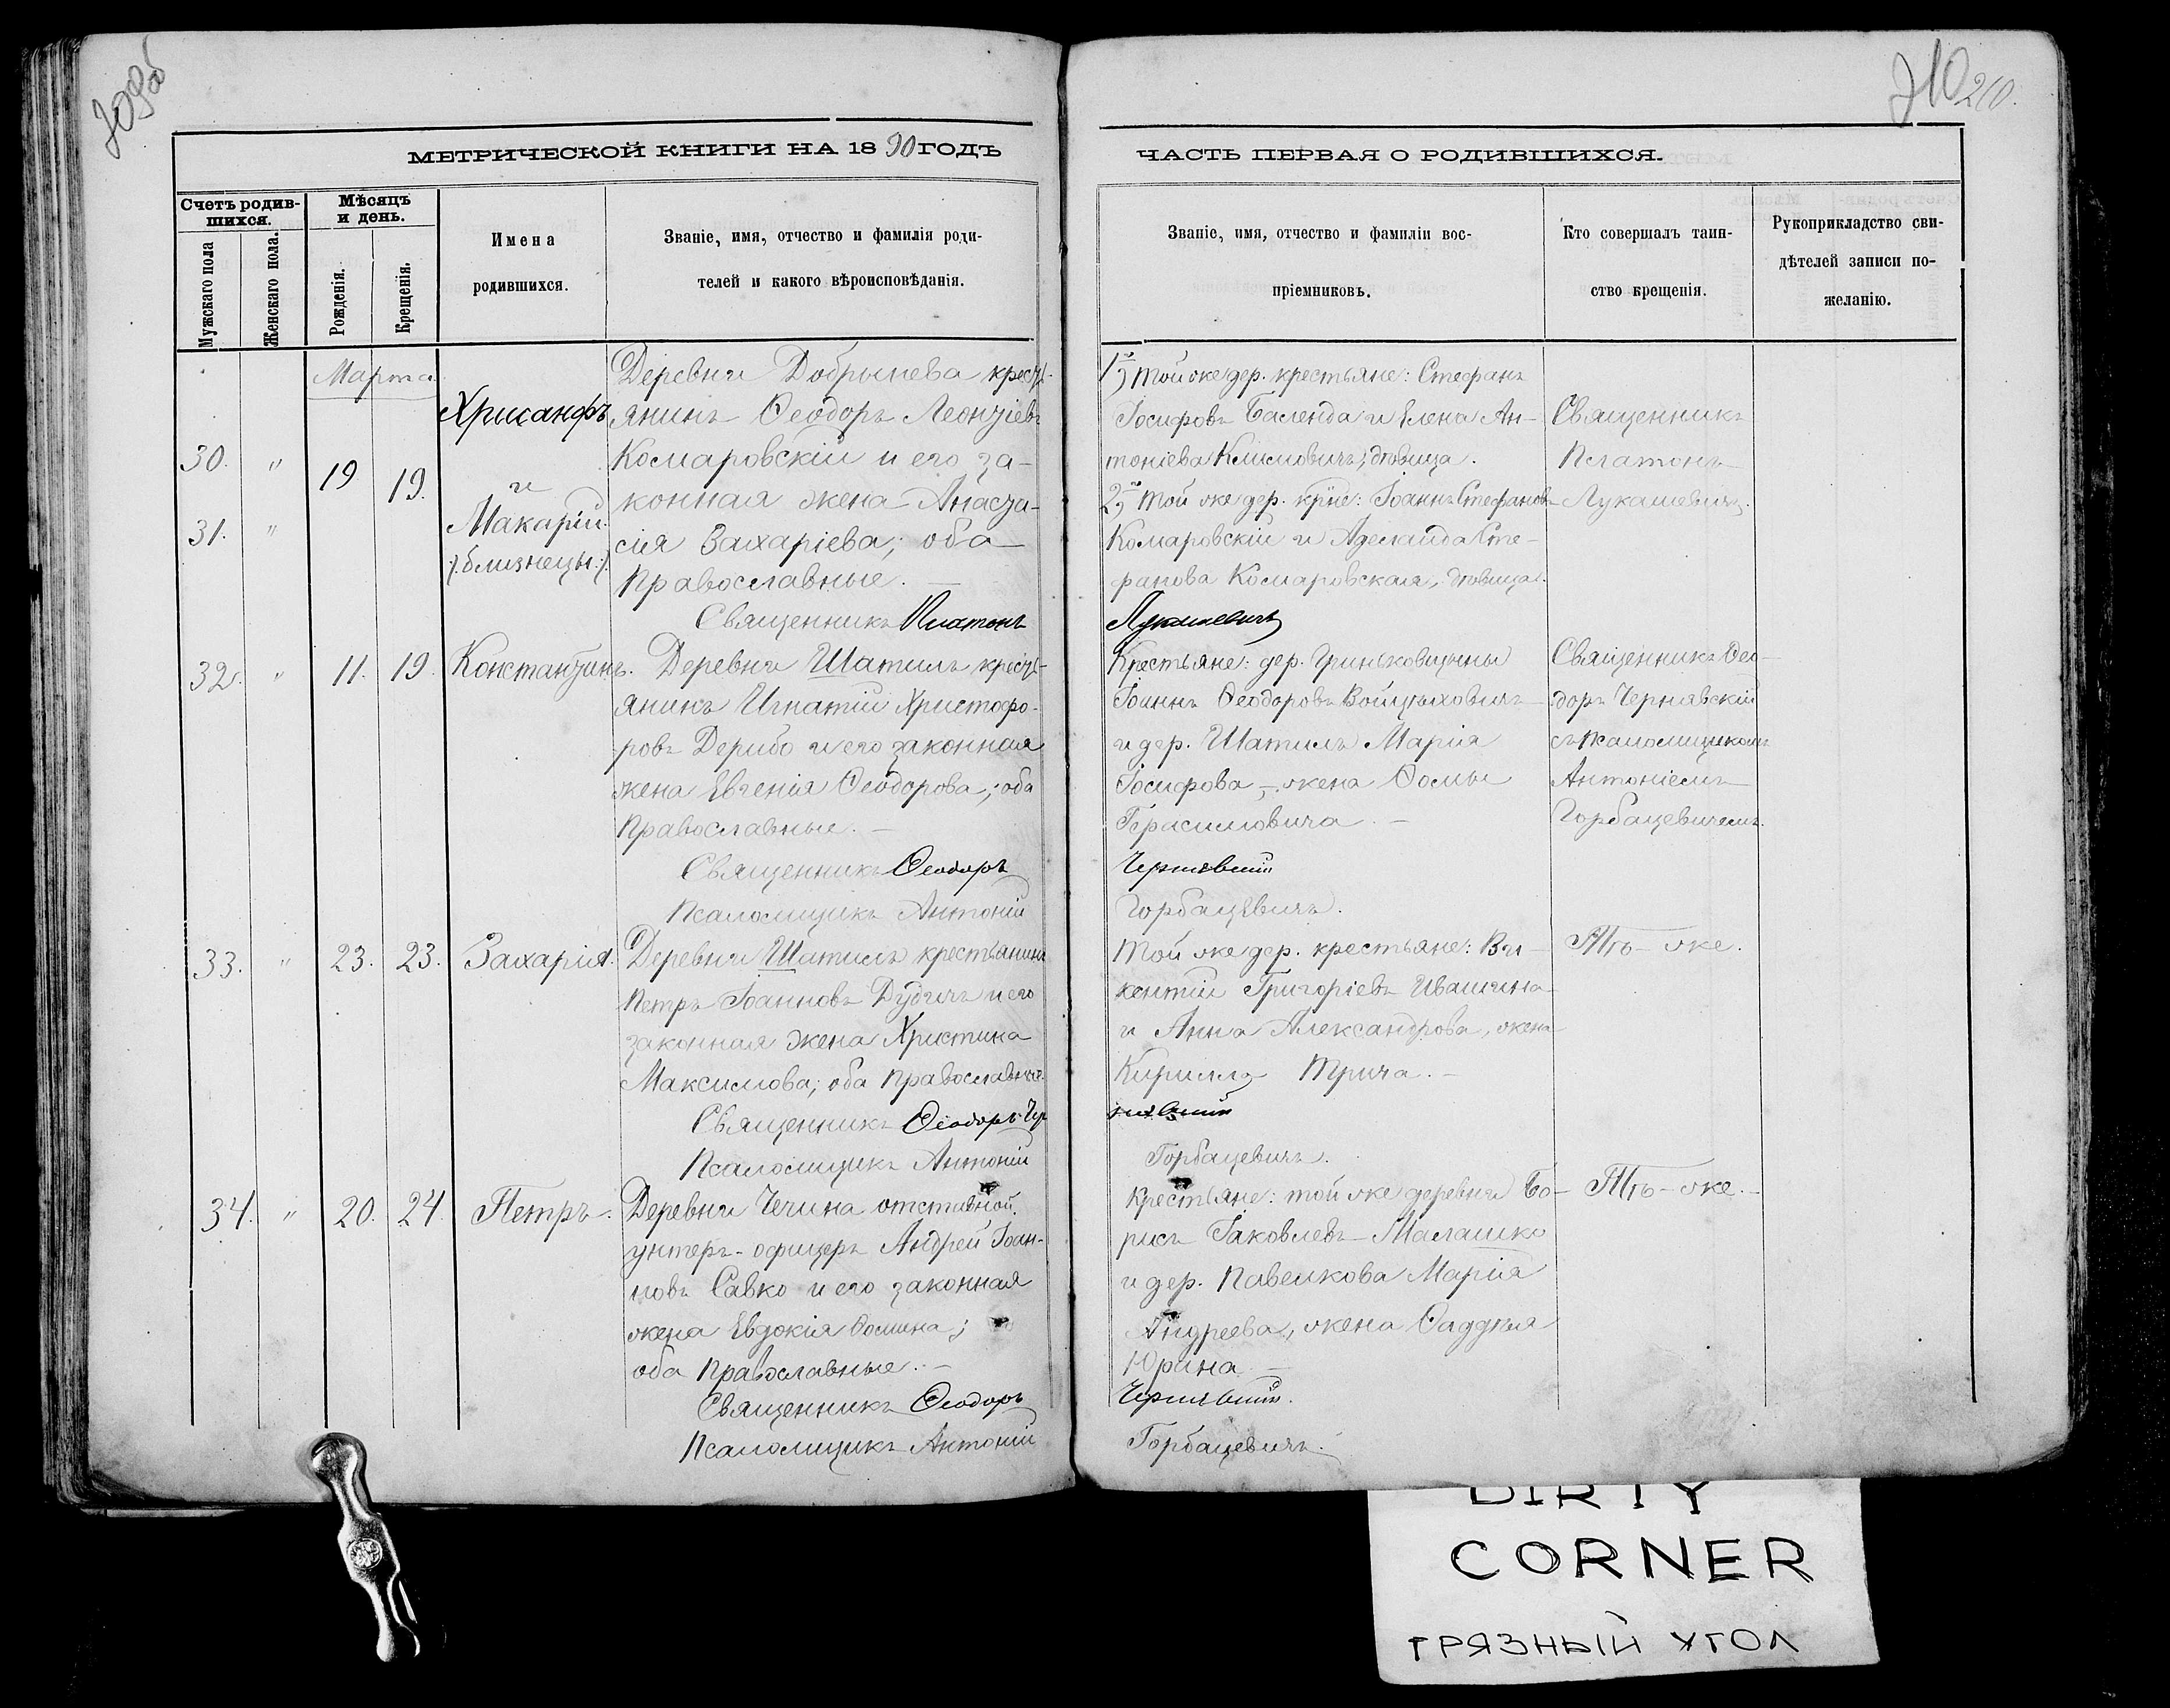 209об
210 210.
МЕТРИЧЕСКОЙ КНИГИ НА 1890 ГОДЪ
ЧАСТЬ ПЕРВАЯ О РОДИВШИХСЯ.
Счетъ родив-
шихся.
Мужскаго пола
Женскаго пола.
Мѣсяцъ
и день.
Рожденія.
Крещенія.
Имена
родившихся.
Званіе, имя, отчество и фамилія роди-
телей и какого вѣроисповѣданія.
Званіе, имя, отчество и фамиліи вос-
пріемниковъ.
Кто совершалъ таин-
ство крещенія.
Рукоприкладство сви-
дѣтелей записи по-
желанію.
Марта
30. "
31. "
19 19.
Хрисанфъ
и
Макарій.
/:близнецы:/.
Деревни Добрынева кресть-
янинъ Ѳеодоръ Леонтіевъ
Комаровскій и его за-
конная жена Анаста-
сія Захаріева; оба
Православные. —
Священникъ Платонъ
1., Той же дер. крестьяне: Стефанъ
Іосифовъ Баленда и Елена Ан-
тоніева Климовичъ, дѣвица.
2., Той же дер. кр̃не: Іоаннъ Стефановъ
Комаровскій и Аделаида Сте-
фанова Комаровская, дѣвица.
Лукашевичъ
Священникъ
Платонъ
Лукашевичъ.
32. " 11. 19. Константинъ.
Деревни Шатилъ кресть-
янинъ Игнатій Христофо-
ровъ Дерибо и его законная
жена Евгенія Ѳеодорова; оба
Православные. —
Священникъ Ѳеодоръ
Псаломщикъ Антоній
Крестьяне: дер. Гриньковщины
Іоаннъ Ѳеодоровъ Войцѣховичъ
и дер. Шатилъ Марія
Іосифова, — жена Ѳомы
Герасимовича. —
Чернявскій
Горбацевичъ.
Священникъ Ѳео-
доръ Чернявскій
съ псаломщикомъ
Антоніемъ
Горбацевичемъ.
33. " 23. 23. Захарія.
Деревни Шатилъ крестьянинъ
Петръ Іоанновъ Дудичъ и его
законная жена Христина
Максимова; оба Православные.
Священникъ Ѳеодоръ Чер
Псаломщикъ Антоній
Той же дер. крестьяне: Ви-
кентій Григоріевъ Ивашина
и Анна Александрова, жена
Кирилла Трича. —
нявскій
Горбацевичъ.
Тѣ-же.
34. " 20. 24. Петръ.
Деревни Чечина отставной
унтеръ-офицеръ Андрей Іоан-
новъ Савко и его законная
жена Евдокія Ѳомина;
оба Православные. —
Священникъ Ѳеодоръ
Псаломщикъ Антоній
Крестьяне: той же деревни Бо-
рисъ Іаковлевъ Малашко
и дер. Павелкова Марія
Андреева, жена Ѳаддея
Юрина —
Чернявскій.
Горбацевичъ.
Тѣ-же. —
DIRTY
CORNER
ГРЯЗНЫЙ УГОЛ